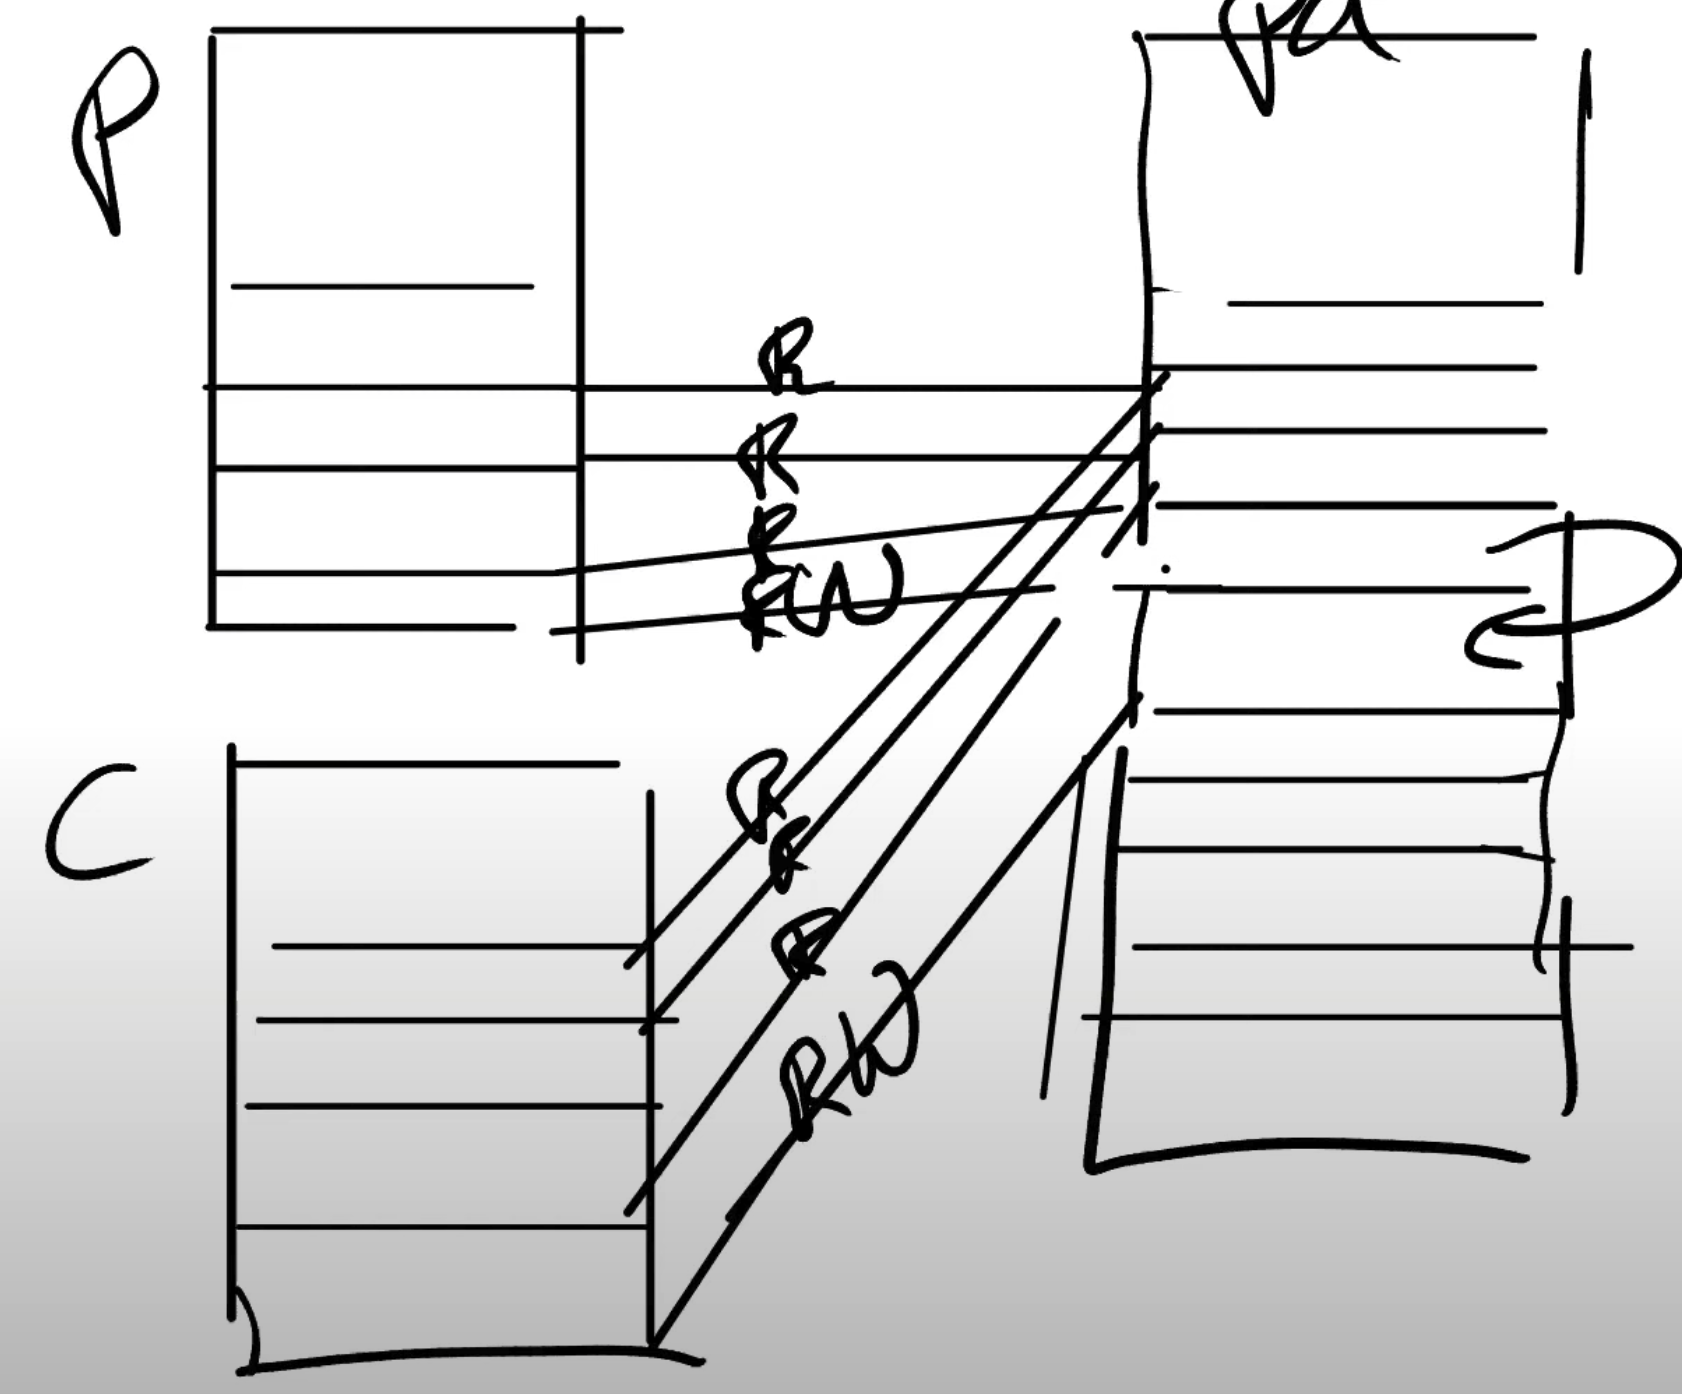 pa
P
R
R
R
RW
C
R
R
R
RW